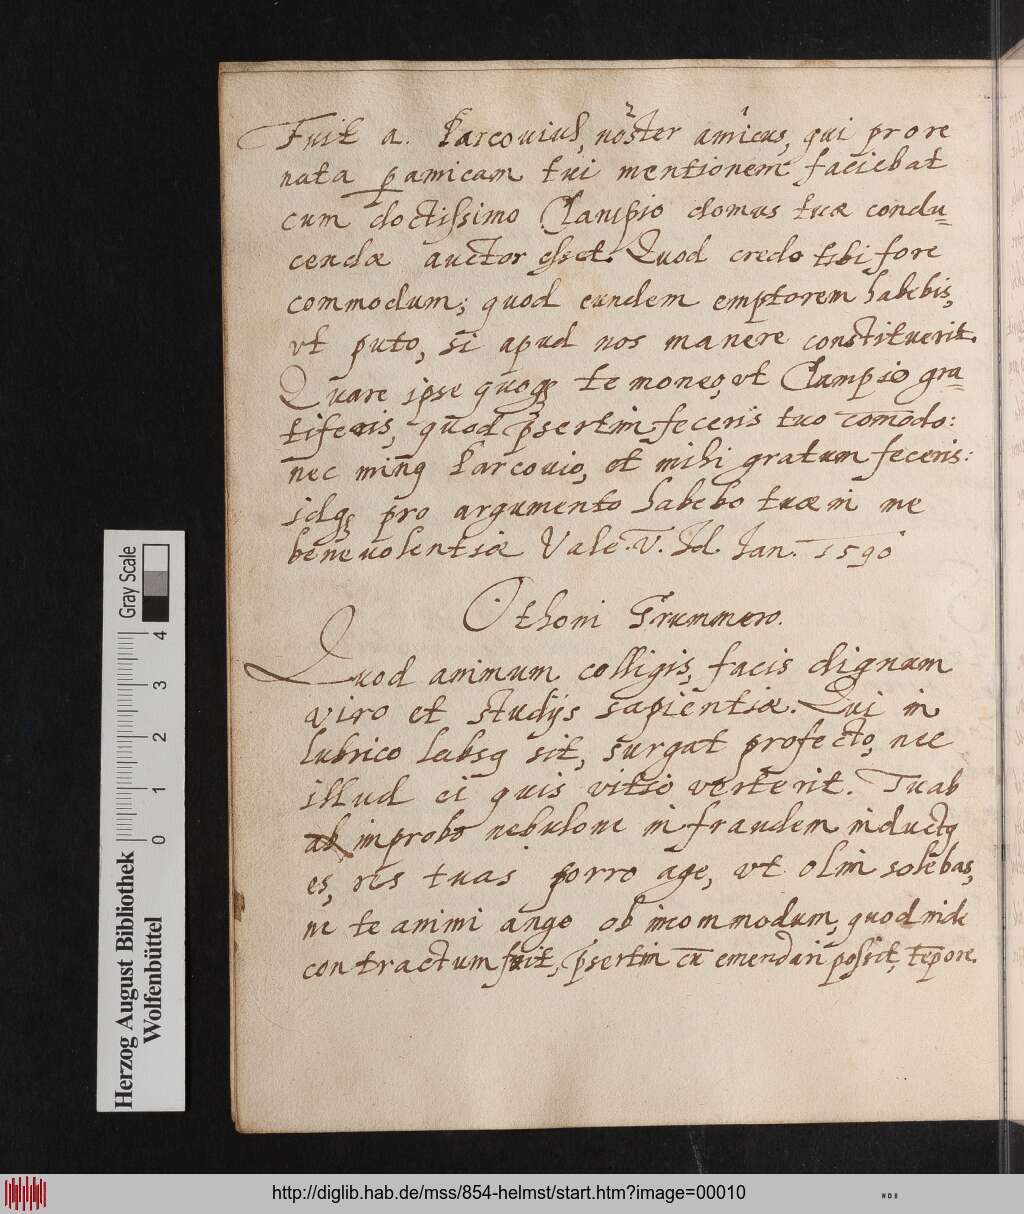 Fuit a. Parcovius, noster amicus, qui pro re
nata peramicam tui mentionem faciebat
cum doctissimo Clampio domus tuæ condu=
cendæ auctor esset. Quod credo tibi fore
commodum; quod eundem emptorem habebis,
vt puto, si apud nos manere constituerit.
Quare ipse quoq; te moneo, vt Clampio gra=
tiferis, quod p̄sertim feceris tuo com̄odo:
nec min9 Parcovio, et mihi gratum feceris:
idq; pro argumento habebo tuæ in me
benevolentiæ Vale. V. Id. Ian. 1590
Othoni Grummero.
Quod animum colligis, facis dignum
viro et studijs sapientiæ. Qui in
lubrico labs9 sit, surgat profecto, nec
illud ei quis vitio verterit. Tu ab
ab improbo nebulone in fraudem induct9
es, res tuas porro age, vt olim solebas,
ne te animi ange ob incommodum, quod inde
contractum fuit, p̄sertim cū emendari possit, tēpore.
Gray Scale
0 1 2 3 4
Herzog August Bibliothek
Wolfenbüttel
http://diglib.hab.de/mss/854-helmst/start.htm?image=00010